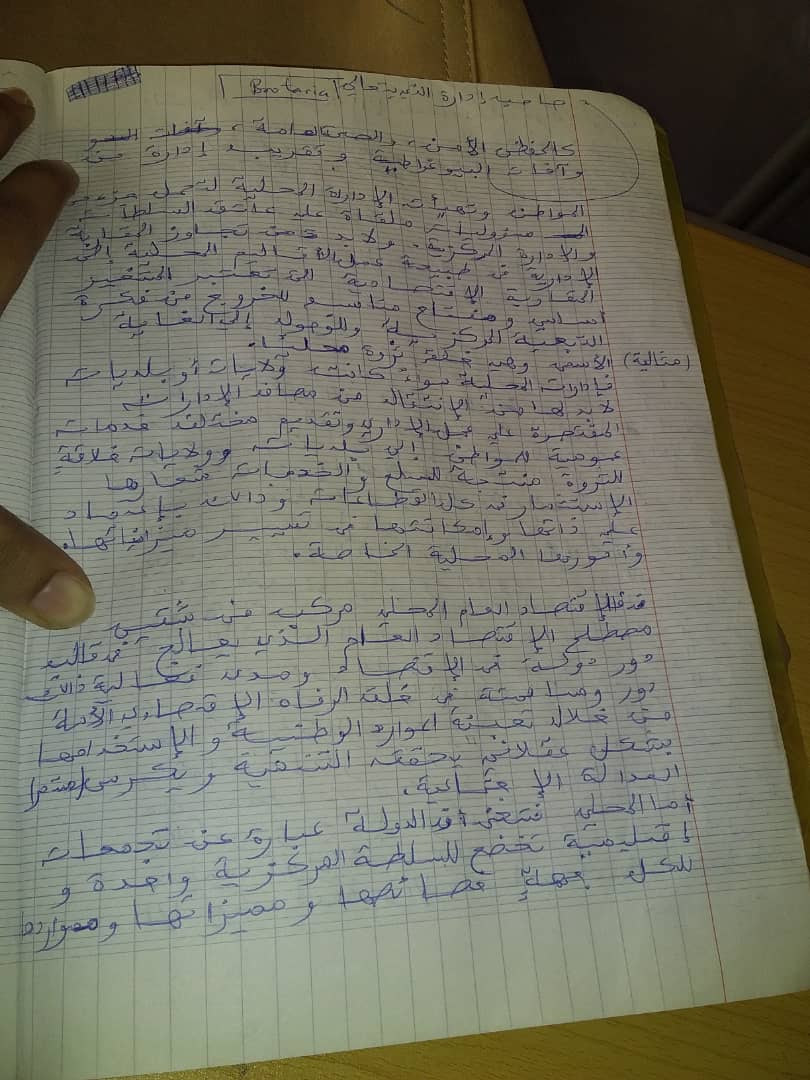 إدارة
Brotaria
كالحفظ الأمن، والصحة العامة،
وآفات البيروقراطية وتقريب إدارة من
المواطن وتهيئت الإدارة المحلية لتحمل
مسؤوليات ملقاة على عاتق السلطات
والإدارة المركزية. ولا بد من تجاوز النقابة
الإدارية في طبيعة عمل الأقاليم المحلية إلى
المقاربة الإقتصادية التي تعتبر المتغير
أساسي ومفتاح مناسم للخروج من فكرة
التبعية المركزية وللوصول إلى الغاية
(مثالية) الأسمى وهي خلق ثروة محليا.
فإدارات المحلية سواء كانت ولايات أو بلديات
لابد لها من الإنتقال من مصاف الإدارات
المقتصرة على عمل الإداري وتقديم مختلف خدمات
عمومية للمواطن إلى بلديات وولايات خلاقة
للثروة منتجة للسلع والخدمات شعارها
الإستثمار في كل القطاعات وذالك بإعتماد
على ذاتها وإمكاناتها في تسيير ميزانياتها.
وأمورها المحلية الخاصة.
فالإقتصاد العام المحلي مركب من شقين
مصطلح الإقتصاد العام الذي يعالج في قالبه
دور دولة في الإقتصاد ومدى فعالية ذالك
دور ومساهمته في خلق الرفاه الإقتصادي للأمة
من خلال تعبئة الموارد الوطنية والإستخدامها
بشكل عقلاني يحقق التنمية ويكرس
العدالة الإجتماعية.
أما المحلي فتعني أن الدولة عبارة عن تجمعات
إقليمية تخضع للسلطة المركزية واحدة و
للكل جهة خصائصها ومميزاتها ومواردها